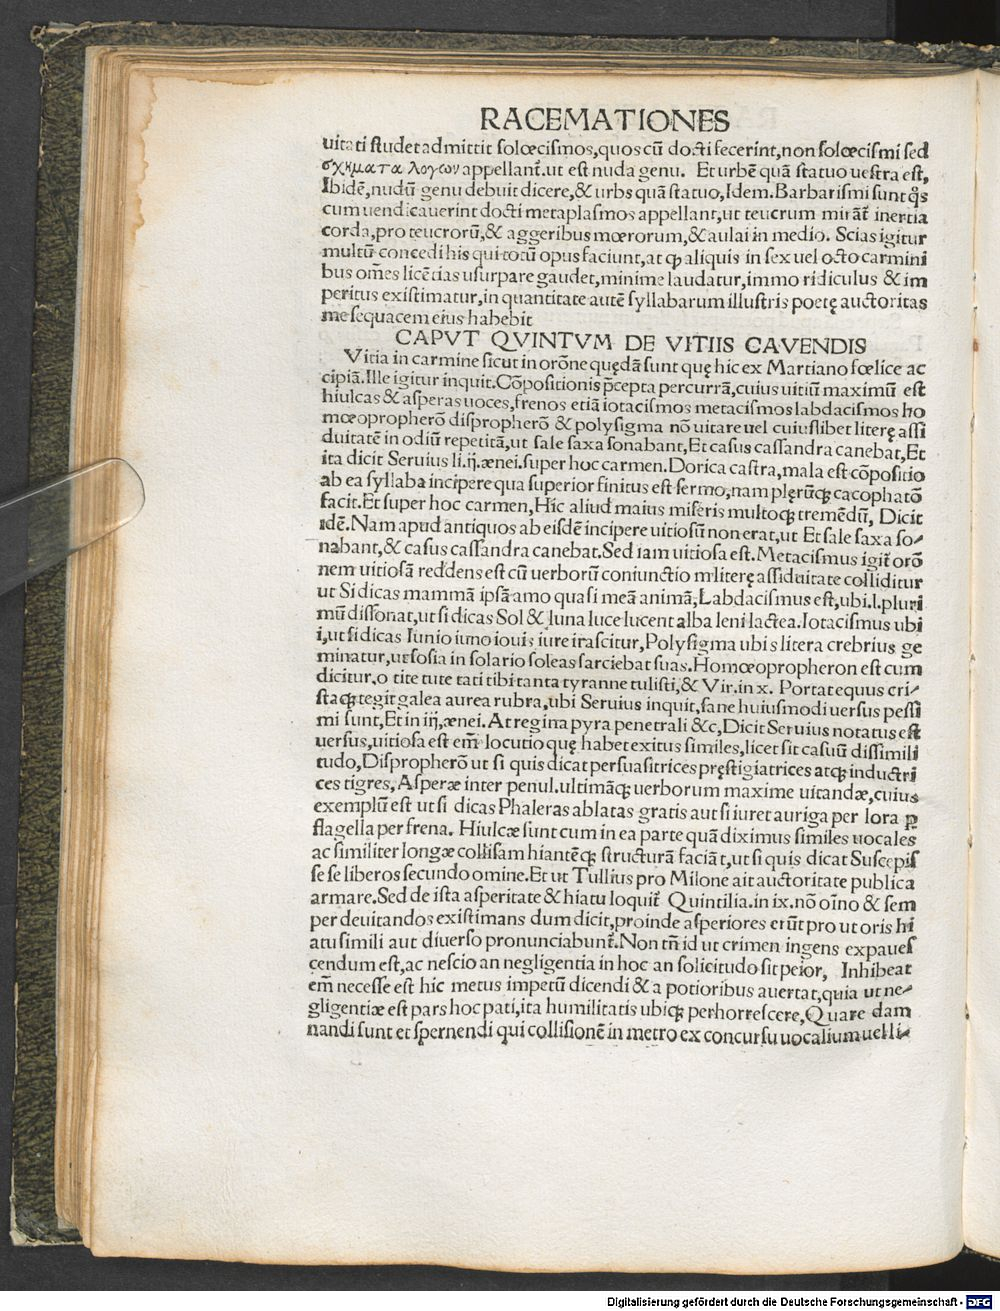 RACEMATIONES
uitati studet admittit solœcismos,quos cũ docti fecerint,non solœcismi sed
σχκματα λογων appellant̃.ut est nuda genu. Et urbẽ quã statuo uestra est,
Ibidẽ,nudũ genu debuit dicere,& urbs quã statuo,Idem.Barbarismi sunt q̃s
cum uendicauerint docti metaplasmos appellant,ut teucrum mirãt̃ inertia
corda,pro teucrorũ,& aggeribus mœrorum,& aulai in medio. Scias igitur
multũ concedi his qui totũ opus faciunt,at ꝙ aliquis in sex uel octo carmini
bus om̃es licẽtias usurpare gaudet,minime laudatur,immo ridiculus & im
peritus existimatur,in quantitate autẽ syllabarum illustris poetę auctoritas
me sequacem eius habebit
CAPVT QVINTVM DE VITIIS CAVENDIS
Vitia in carmine sicut in orõne quędã sunt quę hic ex Martiano fœlice ac
cipiã.Ille igitur inquit.Cõpositionis p̃cepta percurrã,cuius uitiũ maximũ est
hiulcas & asperas uoces,frenos etiã iotacismos metacismos labdacismos ho
mœopropherõ dispropherõ & polysigma nõ uitare uel cuiuslibet literę assi
duitatẽ in odiũ repetitã,ut sale saxa sonabant,Et casus cassandra canebat,Et
ita dicit Seruius li.ij.ænei.super hoc carmen.Dorica castra,mala est cõpositio
ab ea syllaba incipere qua superior finitus est sermo,nam plęrũꝗ cacophatõ
facit.Et super hoc carmen,Hic aliud maius miseris multoꝗ tremẽdũ, Dicit
idẽ.Nam apud antiquos ab eisdẽ incipere uitiosũ non erat,ut Et sale saxa so-
nabant,& casus cassandra canebat.Sed iam uitiosa est.Metacismus igit̃ orõ
nem uitiosã reddens est cũ uerborũ coniunctio m literę assiduitate colliditur
ut Si dicas mammã ipsã amo quasi meã animã,Labdacismus est,ubi.l.pluri
mũ dissonat,ut si dicas Sol & luna luce lucent alba leni lactea.Iotacismus ubi
i,ut si dicas Iunio iuno iouis iure irascitur,Polysigma ubi s litera crebrius ge
minatur,ut sosia in solario soleas sarciebat suas.Homœopropheron est cum
dicitur.o tite tute tati tibi tanta tyranne tulisti,& Vir.in x. Portat equus cri-
staꝗ tegit galea aurea rubra,ubi Seruius inquit,sane huiusmodi uersus pessi
mi sunt,Et in iiij,ænei.At regina pyra penetrali &c,Dicit Seruius notatus est
uersus,uitiosa est em̃ locutio quę habet exitus similes,licet sit casuũ dissimili
tudo,Dispropherõ ut si quis dicat persuasitrices pręstigiatrices atꝗ inductri
ces tigres,Asperæ inter penul.ultimãꝗ uerborum maxime uitandæ,cuius
exemplũ est ut si dicas Phaleras ablatas gratis aut si iuret auriga per lora ꝑ
flagella per frena. Hiulcæ sunt cum in ea parte quã diximus similes uocales
ac similiter longæ collisam hiantẽꝗ structurã faciãt,ut si quis dicat Suscepis
se se liberos secundo omine.Et ut Tullius pro Milone ait auctoritate publica
armare.Sed de ista asperitate & hiatu loquit̃ Quintilia.in ix.nõ oĩno & sem
per deuitandos existimans dum dicit,proinde asperiores erũt pro ut oris hi
atu simili aut diuerso pronunciabunt̃.Non tñ id ut crimen ingens expaues
cendum est,ac nescio an negligentia in hoc an solicitudo sit peior, Inhibeat
em̃ necesse est hic metus impetũ dicendi & a potioribus auertat,quia ut ne-
gligentiæ est pars hoc pati,ita humilitatis ubiꝗ perhorrescere,Quare dam
nandi sunt et spernendi qui collisionẽ in metro ex concursu uocalium uel li-
Digitalisierung gefördert durch die Deutsche Forschungsgemeinschaft - DFG